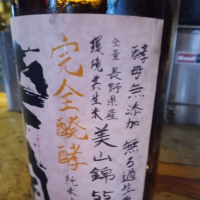 酵母無添加 無ろ過生
全量 長野県産
環境共生米 美山錦 55
完全醗酵
純米